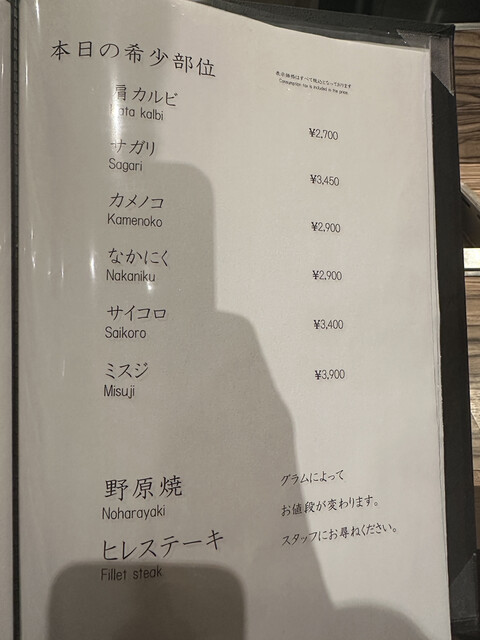 本日の希少部位
表示価格はすべて税込となっております
Consumption tax is included in the prices
肩カルビ
Kata kalbi
¥2,700
サガリ
Sagari
¥3,450
カメノコ
Kamenoko
¥2,900
なかにく
Nakaniku
¥2,900
サイコロ
Saikoro
¥3,400
ミスジ
Misuji
¥3,900
野原焼
Noharayaki
ヒレステーキ
Fillet steak
グラムによって
お値段が変わります。
スタッフにお尋ねください。